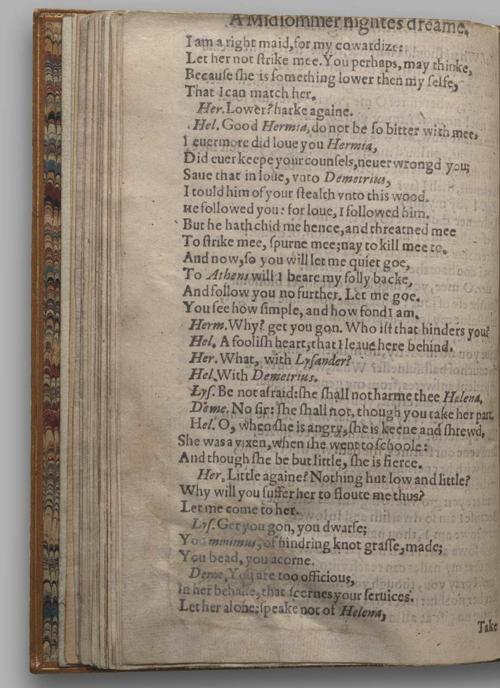 A Midsommer nightes dreame.
I am a right maid, for my cowardize:
Let her not strike mee. You perhaps, may thinke,
Because she is something lower then my selfe,
That I can match her.
Her. Lower? harke againe.
Hel. Good Hermia, do not be so bitter with mee,
I euermore did loue you Hermia,
Did euer keepe your counsels, neuer wrongd you;
Saue that in loue, vnto Demetrius,
I tould him of your stealth vnto this wood.
He followed you: for loue, I followed him.
But he hath chid me hence, and threatned mee
To strike mee, spurne mee; nay to kill mee to.
And now, so you will let me quiet goe,
To Athens will I beare my folly backe,
And follow you no further. Let me goe.
You see how simple, and how fond I am.
Herm. Why? get you gon. Who ist that hinders you?
Hel. A foolish heart, that I leaue here behind.
Her. What, with Lysander?
Hel. With Demetrius.
Lys. Be not afraid: she shall not harme thee Helena.
Deme. No sir: she shall not, though you take her part.
Hel. O, when she is angry, she is keene and shrewd,
She was a vixen, when she went to schoole:
And though she be but little, she is fierce.
Her. Little againe? Nothing but low and little?
Why will you suffer her to floute me thus?
Let me come to her.
Lys. Get you gon, you dwarfe;
You minimus, of hindring knot grasse, made;
You bead, you acorne.
Deme. You are too officious,
In her behalfe, that scornes your seruices.
Let her alone: speake not of Helena,
Take